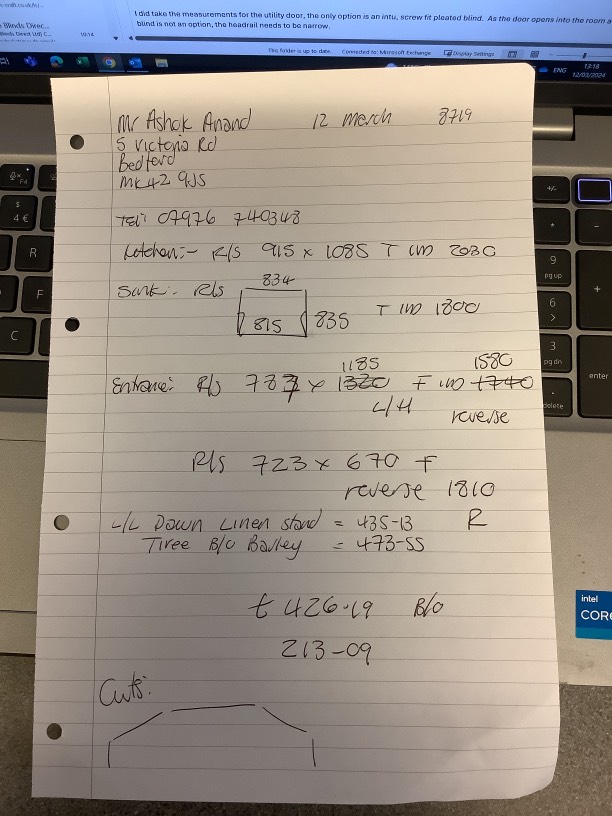 I did take the measurements for the utility door, the only option is an intu, screw fit pleated blind. As the door opens into the room a
blind is not an option, the headrail needs to be narrow.
Blinds Direc...
10:14
This folder is up to date.
Connected to: Microsoft Exchange
Display Settings
ENG
13:18
12/03/2024
Mr Ashok Anand 12 March 8719
5 Victoria Rd
Bedford
MK42 9JS
Tel: 07976 740348
Kitchen:- R/S 915 x 1085 T 2030
Sink:- R/S
834
815 835 T 1800
1185 1580
Entrance: R/S x 1320 F 1740
L/H reverse
R/S 723 x 670 F
reverse 1810
L/L Down Linen stand = 435-13 R
Tiree B/O Barley = 473-55
£426.19 B/O
213-09
Cuts:
$
4 €
R
F
C
+/-
*
-
9
pg up
+
6
>
3
pg dn
enter
.
delete
intel
CORE